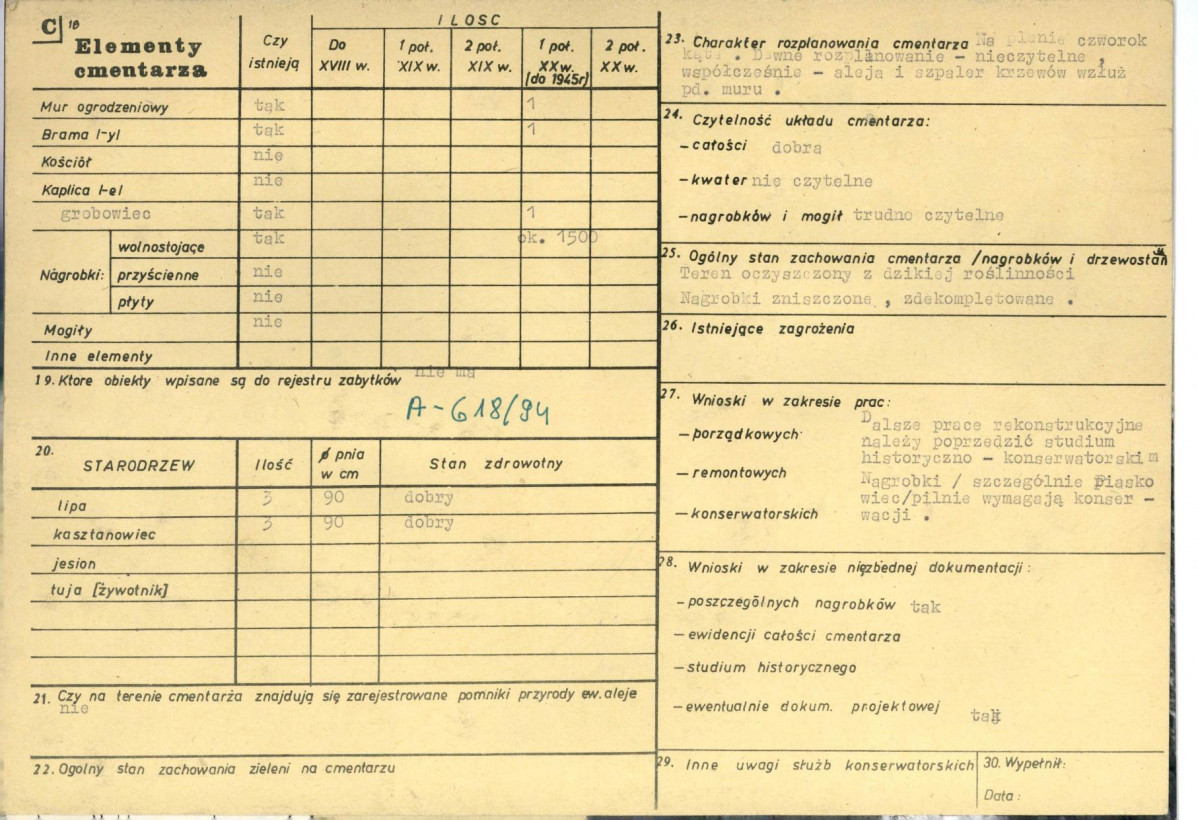 C 18
Elementy cmentarza
Czy istnieją
ILOSC
Do XVIII w.
1 poł. XIX w.
2 poł. XIX w.
1 poł. XXw. (do 1945r)
2 poł. XX w.
Mur ogrodzeniowy tąk 1
Brama I-yl tąk 1
Kościół nie
Kaplica I-el nie
grobowiec tąk 1
Nagrobki: wolnostojące tąk ok. 1500
przyścienne nie
płyty nie
Mogiły nie
Inne elementy
19. Ktore obiekty wpisane są do rejestru zabytków nie ma
A-618/94
20. STARODRZEW Ilość ø pnia w cm Stan zdrowotny
lipa 3 90 dobry
kasztanowiec 3 90 dobry
jesion
tuja [żywotnik]
21. Czy na terenie cmentarża znajdują się zarejestrowane pomniki przyrody ew. aleje
nie
22. Ogolny stan zachowania zieleni na cmentarzu
23. Charakter rozplanowania cmentarza Na planie czworok
kąta . Dawne rozplanowanie - nieczytelne ,
współcześnie - aleja i szpaler krzewów wzłuż
pd. muru .
24. Czytelność układu cmentarza:
- całości dobra
- kwater nie czytelne
- nagrobków i mogił trudno czytelne
25. Ogólny stan zachowania cmentarza /nagrobków i drzewostan
Teren oczyszczony z dzikiej roślinności
Nagrobki zniszczone , zdekompletowane .
26. Istniejące zagrożenia
27. Wnioski w zakresie prac:
- porządkowych
- remontowych
- konserwatorskich
Dalsze prace rekonstrukcyjne
należy poprzedzić studium
historyczno - konserwatorskim
Nagrobki / szczególnie Piasko
wiec/pilnie wymagają konser -
wacji .
28. Wnioski w zakresie niezbednej dokumentacji:
- poszczególnych nagrobków tąk
- ewidencji całości cmentarza
- studium historycznego
- ewentualnie dokum. projektowej tąk
29. Inne uwagi służb konserwatorskich
30. Wypełnił:
Data: